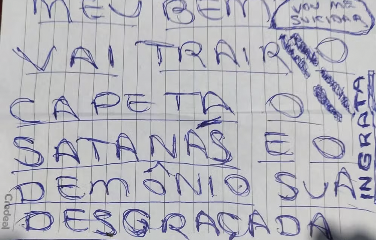 MEU BEM
VOU ME
SUICIDAR
VAI TRAIR O
CAPETA O
SATANÁS E O
DEMÔNIO SUA
DESGRAÇADA
INGRATA
Cadersil